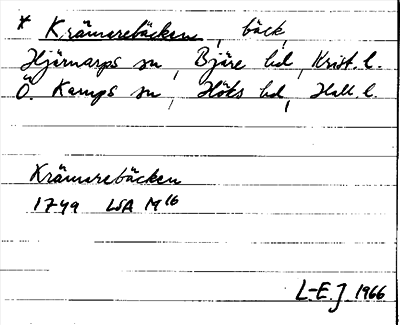 * Krämarebäcken, bäck,
Hjärnarps sn, Bjäre hd, Krist. l.
Ö. Karups sn, Höks hd, Hall. l.
Krämarebäcken
1749 LSA M 16
L-E.J 1966